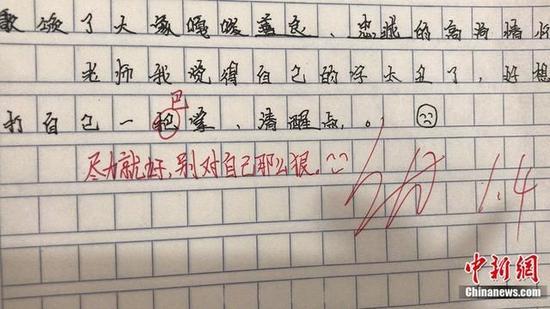 颂了大象嘎嘎善良、忠诚的高尚情
老师我觉得自己的字太丑了，好想
巴
打自己一把掌，清醒点。
尽力就好，别对自己那么狠。
1.4
中新網
Chinanews.com